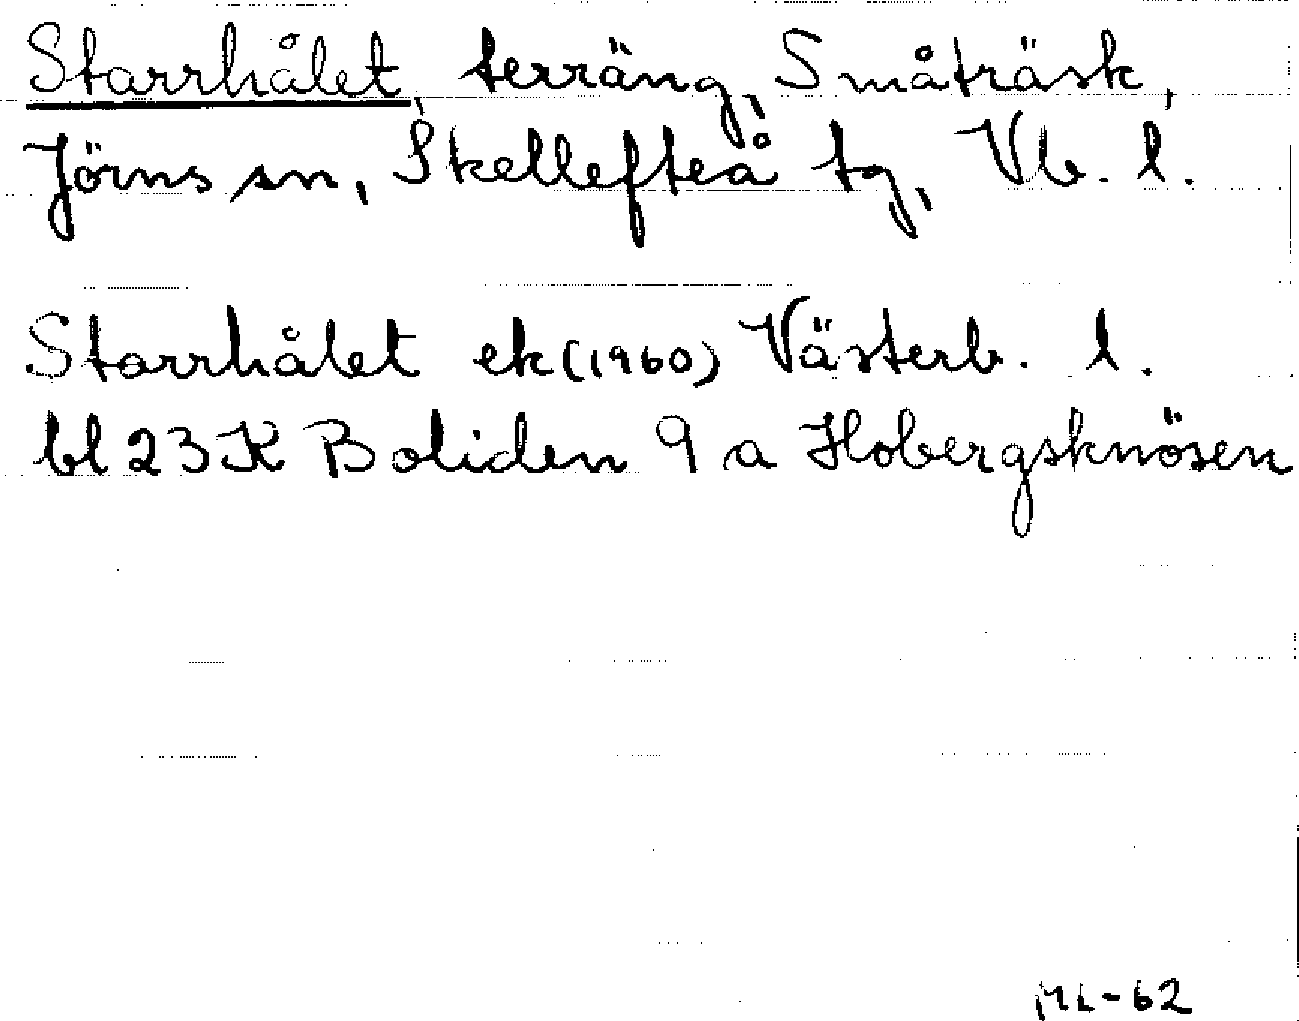 Starrhålet, terräng, Småträsk,
Jörns sn, Skellefteå tg, Vb. l.
Starrhålet ek (1960) Västerb. l.
bl 23 K Boliden 9 a Hobergsknösen
ML-62